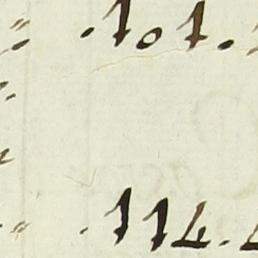 .101.
.114.